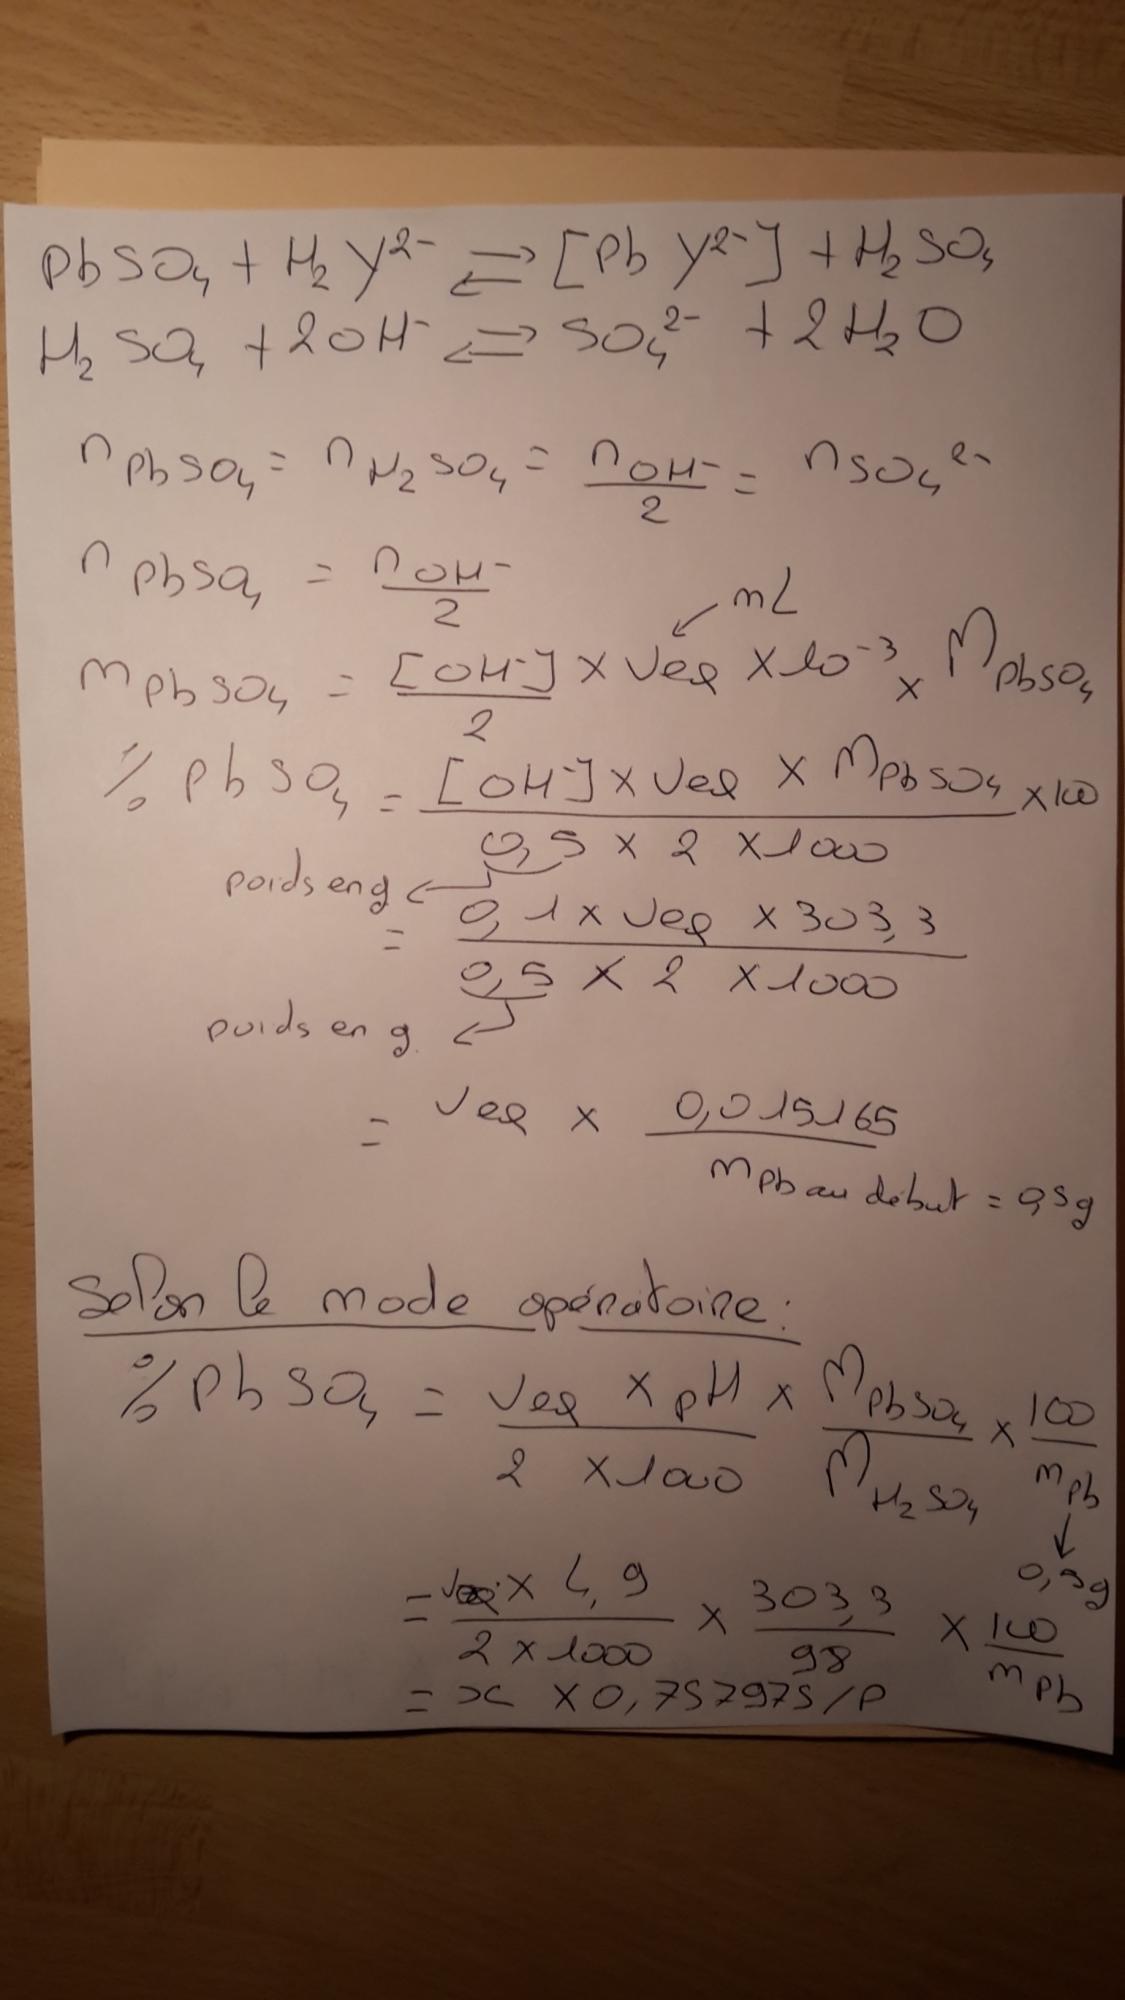 PbSO₄ + H₂Y²⁻ ⇌ [PbY²⁻] + H₂SO₄
H₂SO₄ + 2OH⁻ ⇌ SO₄²⁻ + 2H₂O
n PbSO₄ = n H₂SO₄ = n OH⁻ / 2 = n SO₄²⁻
n PbSO₄ = n OH⁻ / 2
mL
m PbSO₄ = [OH⁻] / 2 × Veq × 10⁻³ × M PbSO₄
% PbSO₄ = [OH⁻] × Veq × M PbSO₄ / 0,5 × 2 × 1000 × 100
poids en g
= 0,1 × Veq × 303,3 / 0,5 × 2 × 1000
poids en g.
= Veq × 0,015165 / m Pb au début = 0,5g
Selon le mode opératoire :
% PbSO₄ = Veq × pH / 2 × 1000 × M PbSO₄ / M H₂SO₄ × 100 / m Pb
0,5g
= Veq × 4,9 / 2 × 1000 × 303,3 / 98 × 100 / m Pb
= x × 0,757975/P